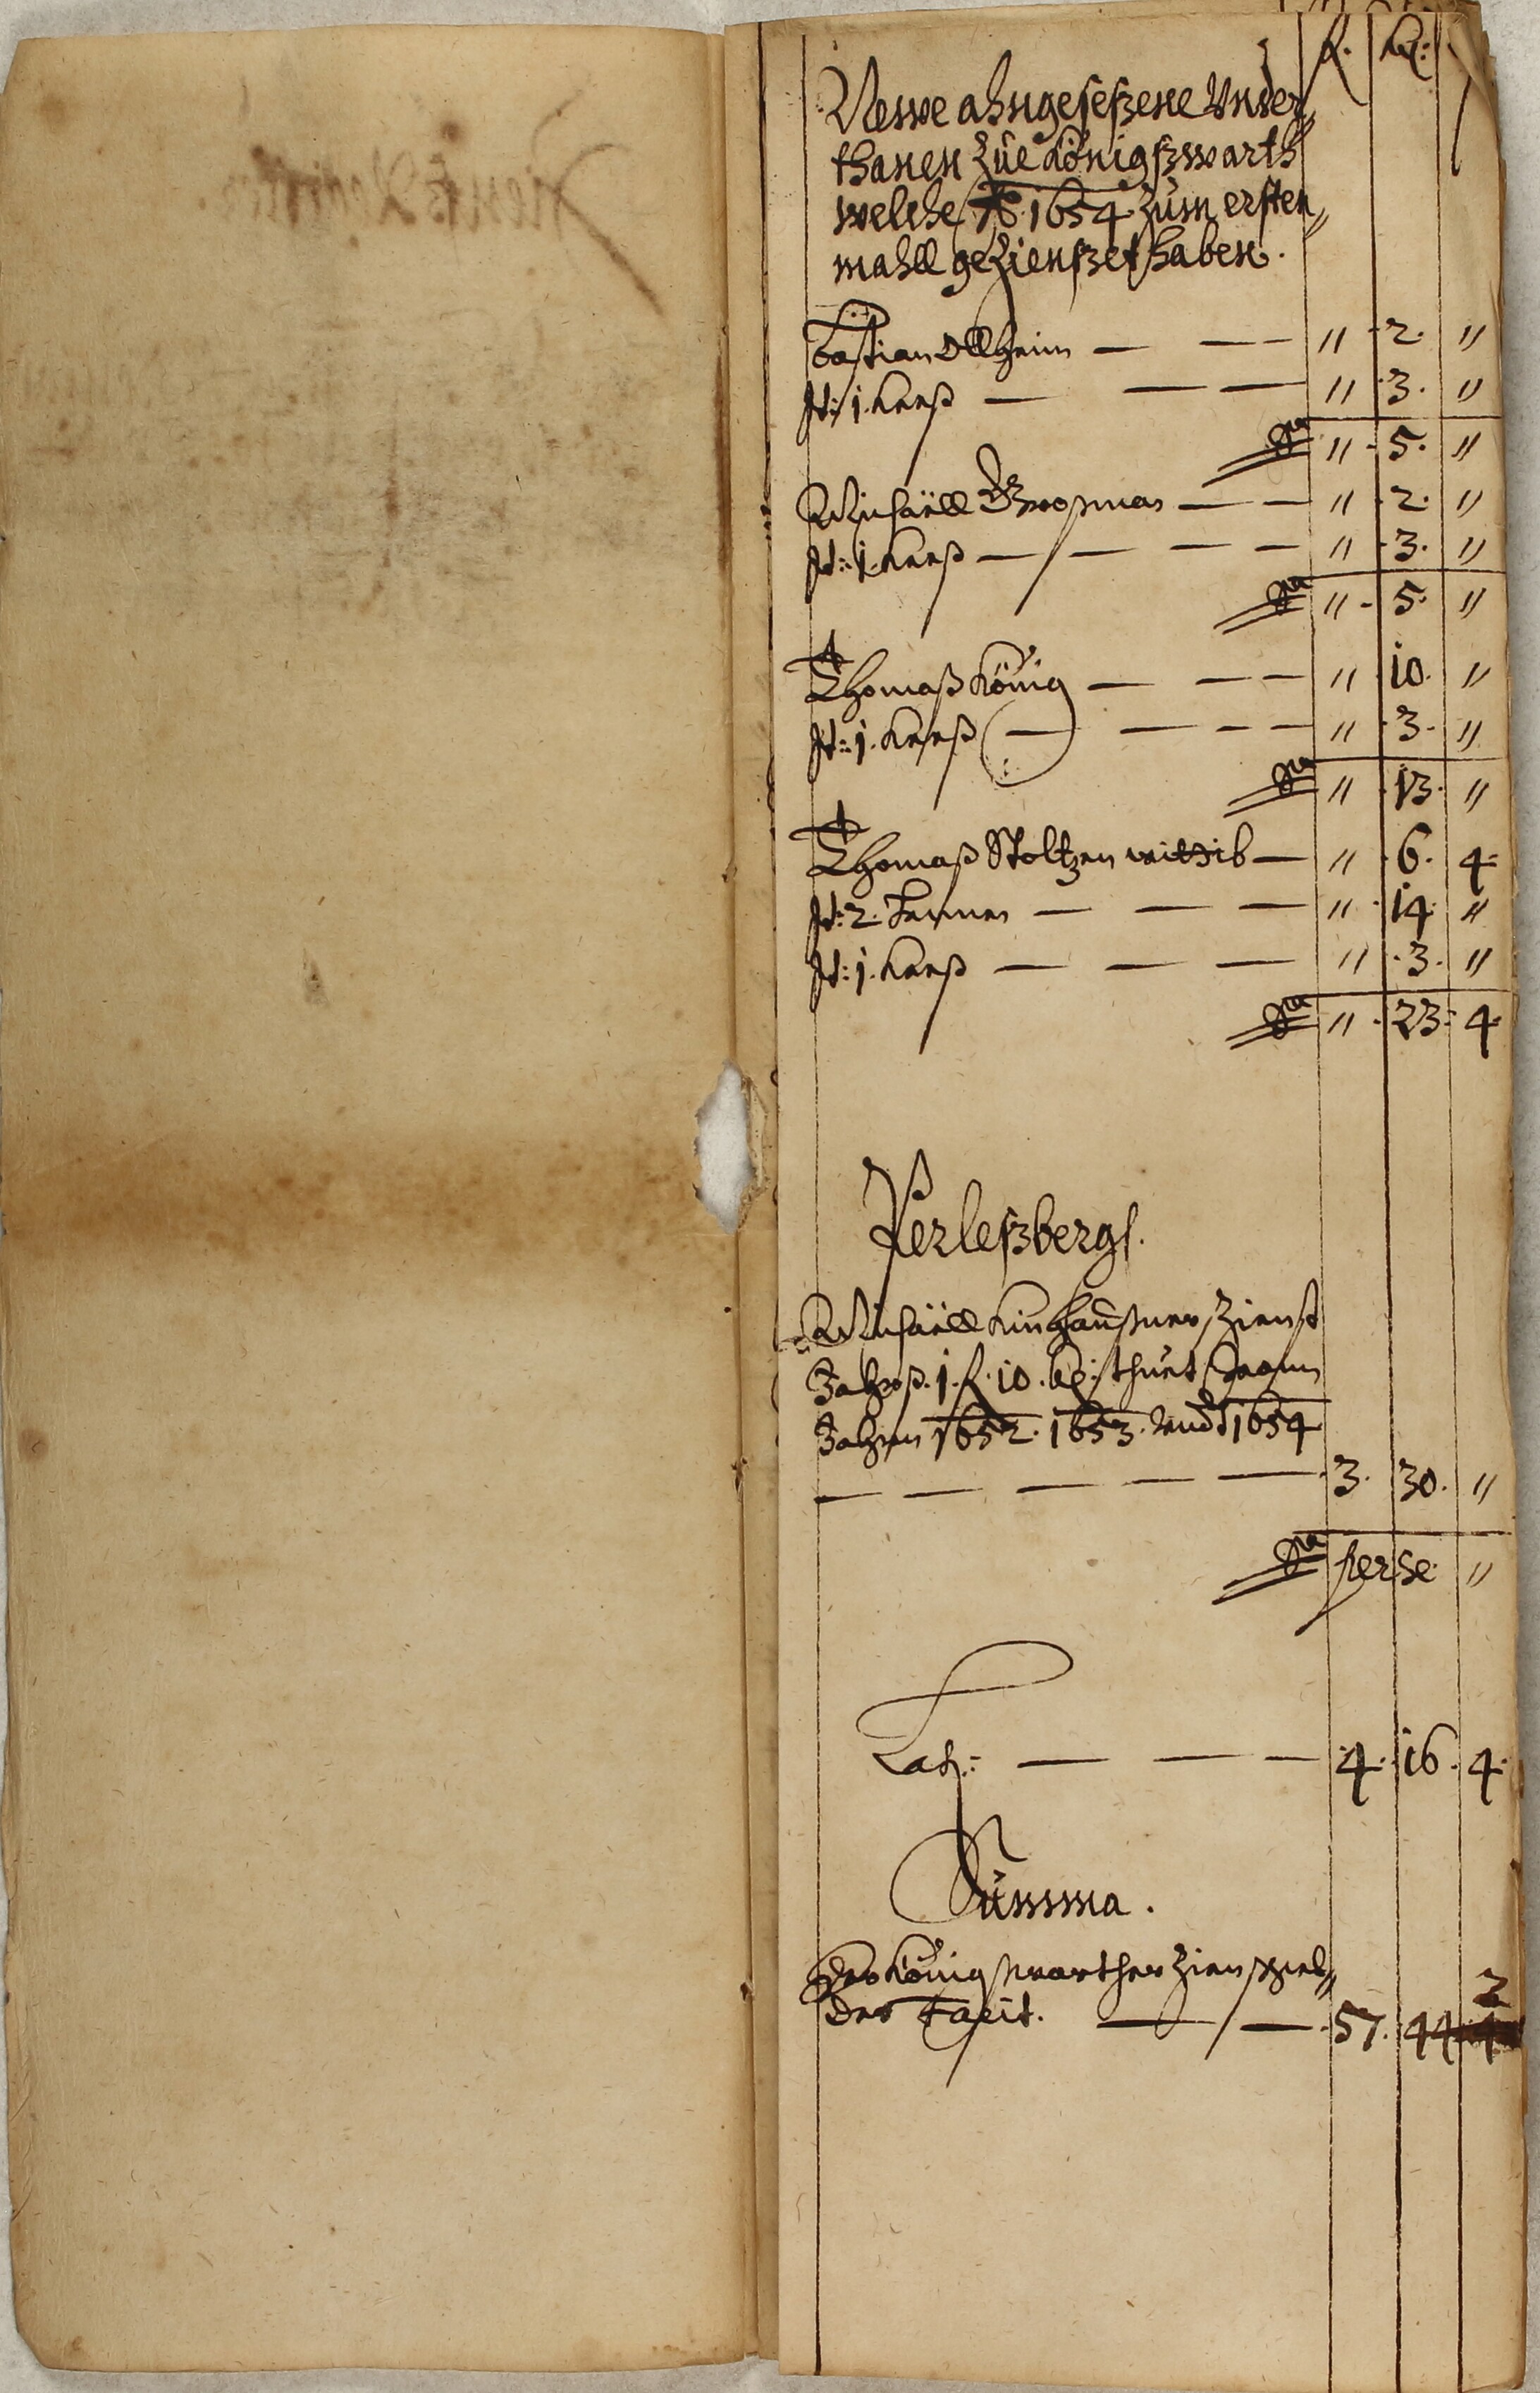 f. kr:
Newe ahngeseßene Vnder„
thanen Zue Königßwarth
welche Ao. 1654. zum ersten„
mahll geZienßet haben.
Bastian Ollheim — — — „ 2. „
It: 1. Kaeß — — — „ 3. „
Sa „ 5. „
Michaell — — „ 2. „
It: 1. Kaeß — — — — „ 3. „
Sa „ 5. „
Thomaß König — — — „ 10. „
It: 1. Kaeß — — — — „ 3. „
Sa „ 13. „
Thomaß Stoltzen wittib — „ 6. 4.
It: 2. Hennen — — — „ 14. „
It: 1. Kaeß — — — „ 3. „
Sa „ 23. 4.
Perleßbergs.
Michaell Zienst
Jahrß. 1. f. 10. kr: thuet
Jahren 1652. 1653. vnd 1654
— — — — — 3. 30. „
Sa per se „
Lat: — — — 4. 16. 4.
Summa.
Der Königswarther
der facit. — — 57. 44 2